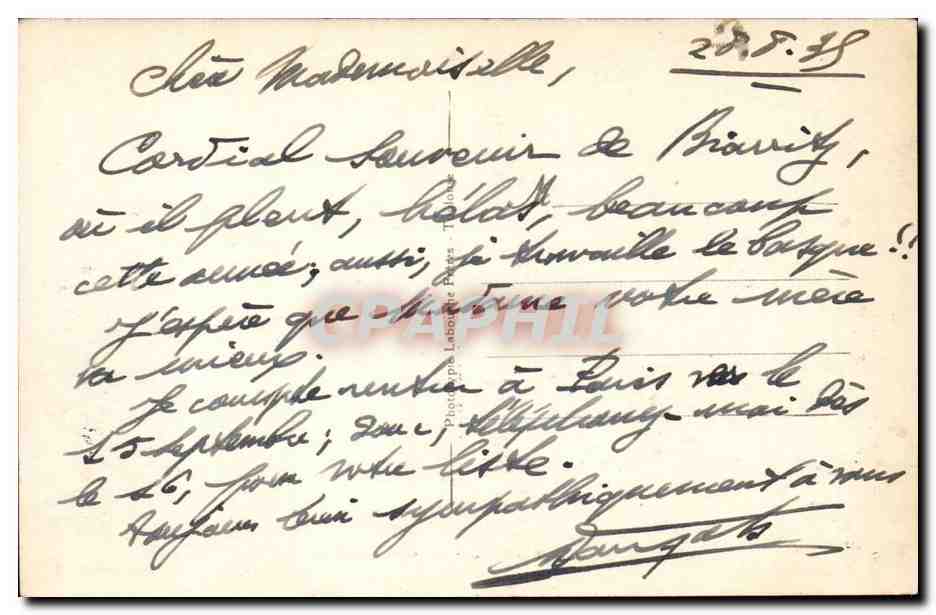 28.8.35
Chère Mademoiselle,
Cordial souvenir de Biarritz,
où il pleut, hélas, beaucoup
cette année; aussi, je travaille le basque!!
J'espère que Madame votre mère
va mieux.
Je compte rentrer à Paris vers le
15 septembre; donc, téléphonez-moi dès
le 16, pour votre liste.
toujours bien sympathiquement à vous
CPAPHIL
Photographie Labouche Frères - Toulouse